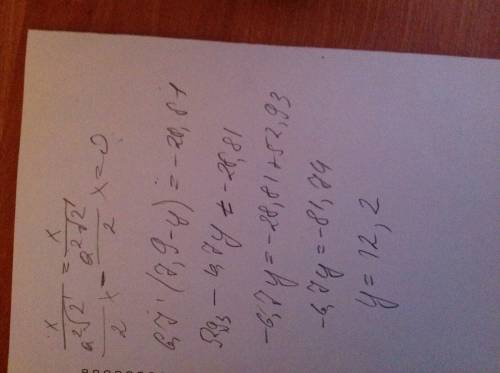 x/a²√2 = x/a²√2
a²√2/2 x - a²√2/2 x = 0
6,7·(7,9-y) = -28,81
52,93 - 6,7y = -28,81
-6,7y = -28,81+52,93
-6,7y = -81,74
y = 12,2